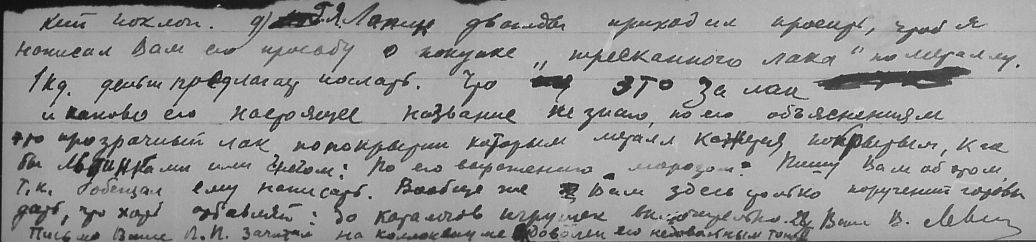 кий поклон. Дядя Ланге дважды приходил просить, чтоб я
написал Вам его просьбу о покупке „тресканного лака" по металлу.
1 кд. деньги предлагал послать. Что это за лак
и каково его настоящее название не знаю, по его объяснениям
это прозрачный лак по покрытии которым металл кажется покрытым, как
бы льдинками или снегом: По его выражению „морозом". Пишу Вам об этом,
т.к. обещал ему написать. Вообще же Вам здесь только поручения готовы
дать, что хоть отбавляй: За каталогов игрушек Вам В.
Письмо Ваше П.П. зачитал на коллоквиуме доволен его тоне